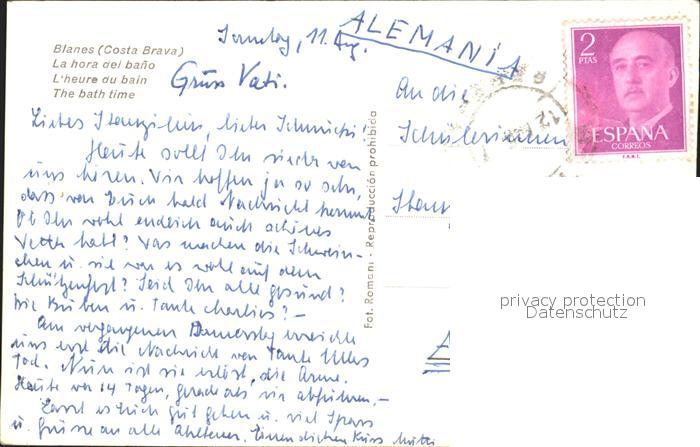 Blanes (Costa Brava)
La hora del baño
L'heure du bain
The bath time
Sonntag, 11. Aug.
ALEMANIA
Gruss Vati.
Liebes lieber
Heute sollt Ihr wieder von
uns hören. Wir hoffen ja so sehr,
dass von Euch bald Nachricht kommt.
Ob Ihr wohl endlich auch schönes
Wetter habt? Was machen die Schwein-
chen u. wie war es wohl auf dem
Schützenfest? Seid Ihr alle gesund?
Die Buben u. Tante Charlies? –
Am vergangenen Donnerstag erreichte
uns erst die Nachricht von Tante
Tod. Nun ist sie erlöst, die Arme.
Heute vor 14 Tagen, gerade als wir abfuhren. –
Lasst es Euch gut gehen u. viel Spass
u. Grüsse an alle Einen dicken Kuss Mutti
Fot. Romani - Reproducción prohibida
An die
Schülerinnen
2
PTAS
ESPAÑA
CORREOS
F.N.M.T.
privacy protection
Datenschutz